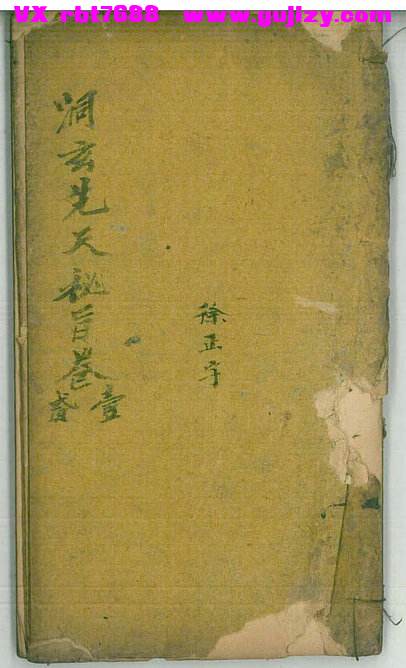 VX rbt7688 www.gujizy.com
徐正字
洞玄先天秘旨卷
壹